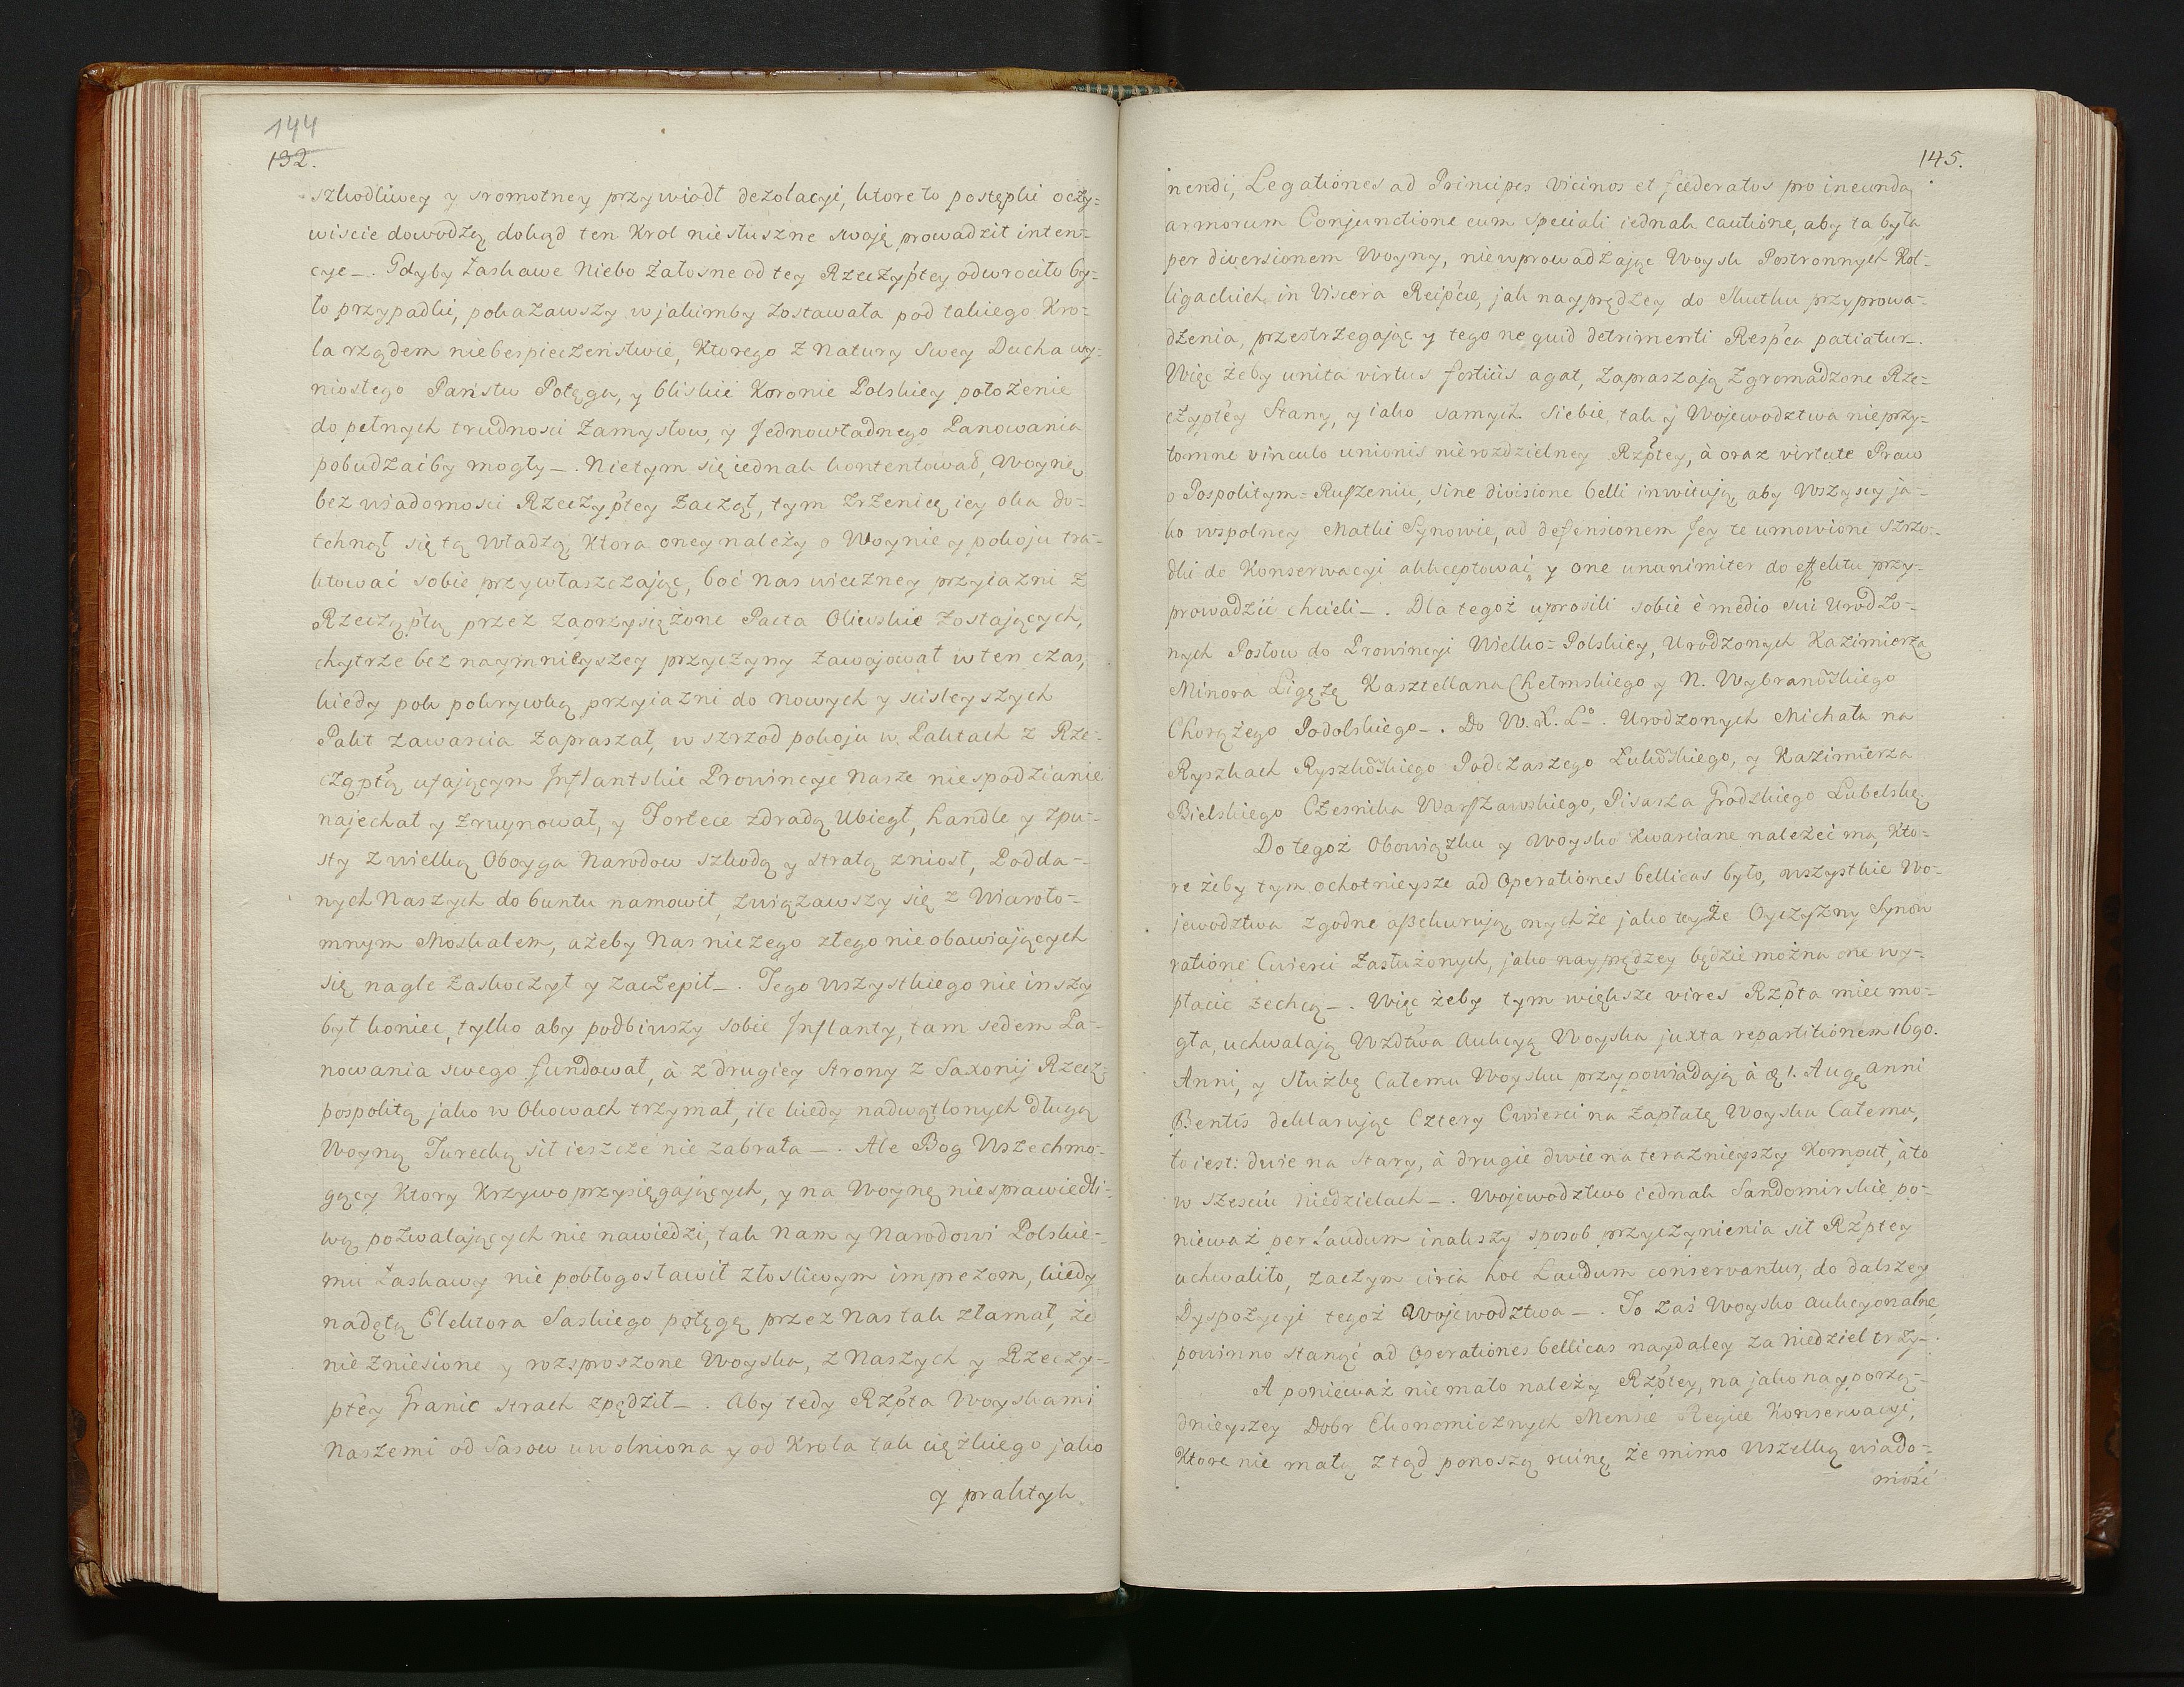 144
132.
szkodliwey y sromotney przywiodł dezolacyi, ktore to postępki oczy=
wiscie dowodzą dokąd ten Krol niesłuszne swoję prowadził inten=
cye _. Gdyby Łaskawe Niebo żałosne od tey Rzeczyptey odwrociło by=
ło przypadki, pokazawszy w jakimby zostawała pod takiego Kro=
la rządem niebespieczeństwie, Ktorego z Natury Swey Ducha wy=
niosłego Państw Potęga, y bliskie Koronie Polskiey położenie
do pełnych trudnosci Zamysłow, y Jednowładnego Panowania
pobudzaćby mogły _. Nie tym się iednak kontentował, Woynę
bez wiadomosci Rzeczyptey Zaczął, tym Zrzenicę iey oka do=
tchnął się tą Władzą, Ktora oney należy o Woynie y pokoju tra=
ktować sobie przywłaszczając, boć Nas wieczney przyiazni z
Rzecząptą przez Zaprzysiężone Pacta Oliwskie Zostających,
chytrze bez naymnieyszey przyczyny zawojował w ten czas,
kiedy pok pokrywką przyiazni do Nowych y scisleyszych
Pakt zawarcia Zapraszał, w szrzod pokoju w Paktach z Rze=
cząptą ufającym Inflantskie Prowincye Nasze niespodzianie
najechał y zruynował, y Fortece zdradą Ubiegł, handle y spu=
sty z wielką Oboyga Narodow szkodą y stratą zniosł, Podda=
nych Naszych do buntu namowił, Związawszy się z Wiaroło=
mnym Moskalem, ażeby Nas niczego złego nie obawiających
się nagle Zaskoczył y Zaczepił _. Tego Wszystkiego nie inszy
był koniec, tylko aby podbiwszy sobie Inflanty, tam sedem Pa=
nowania swego fundował, à z drugiey Strony z Saxonij Rzecz=
pospolitą jako w Okowach trzymał, ile kiedy nadwątlonych długą
Woyną Turecką sił ieszcze nie zabrała _. Ale Bog Wszechmo=
gący Ktory Krzywoprzysięgających, y na Woynę niesprawiedli=
wą pozwalających nie nawiedzi, tak Nam y Narodowi Polskie=
mu Łaskawy nie pobłogosławił złosliwym imprezom, kiedy
nadętą Elektora Saskiego potęgę przez Nas tak złamał, że
nie zniesione y rozsproszone Woyska, z Naszych y Rzeczy=
ptey Granic strach spędził _. Aby tedy Rzpta Woyskami
Naszemi od Sasow uwolniona y od Krola tak ciężkiego jako
y praktyk
145.
nendi, Legationes ad Principes Vicinos et fæderatos pro ineunda
armorum Conjunctione cum speciali iednak cautione, aby ta była
per diversionem Woyny, nie wprowadzając Woysk Postronnych Kol=
ligackich in Viscera Reipcæ, jak nayprędzey do Skutku przyprowa=
dzenia, przestrzegając y tego ne quid detrimenti Respca patiatur _.
Więc żeby unita virtus fortiùs agat, Zapraszają Zgromadzone Rze=
czyptey Stany, y iako samych siebie, tak y Wojewodztwa nieprzy=
tomne vinculo unionis nierozdzielney Rzptey, à oraz virtute Praw
o Pospolitym=Ruszeniu, sine divisione belli inwitują, aby Wszyscy ja=
ko wspolney Matki Synowie, ad defensionem Jey te umowione szrzo=
dki do Konserwacyi akkceptować, y one unanimiter do effektu przy=
prowadzić chcieli _. Dla tegoż uprosili sobie è medio sui Urodzo=
nych Posłow do Prowincyi Wielko=Polskiey, Urodzonych Kazimierza
Minora Ligęzę Kasztellana Chełmskiego y N. Wybranowskiego
Chorążego Podolskiego _. Do W. X. Lo. Urodzonych Michała na
Ryszkach Ryszkowskiego Podczaszego Łukowskiego, y Kazimierza
Bielskiego Czesnika Warszawskiego, Pisarza Grodzkiego Lubelskę
Do tegoż Obowiązku y Woysko Kwarciane należeć ma, Kto=
re żeby tym ochotnieysze ad Operationes bellicas było, wszystkie Wo=
jewodztwa zgodne assekurują onychże jako teyże Oyczyzny Synow
ratione Cwierci Zasłużonych, jako nayprędzey będzie można one wy=
płacić Zechcą _. Więc żeby tym większe vires Rzpta miec mo=
gła, uchwalają Wzdtwa Aukcyą Woyska juxta repartitionem 1690.
Anni, y Służbę Całemu Woysku przypowiadają à 1. Augę anni
Bentis deklarując Cztery Cwierci na Zapłatę Woysku Całemu,
to iest: dwie na Stary, à drugie dwie na terazniejszy Komput, à to
w szesciu Niedzielach _. Wojewodztwo iednak Sandomirskie po=
nieważ per Laudum inakszy sposob przyczynienia sił Rzptey
uchwaliło, zaczym circa hoc Laudum conservantur, do dalszey
Dyspozycyi tegoż Wojewodztwa _. To zaś Woysko Aukcyonalne
powinno stanąć ad Operationes bellicas naydaley Za Niedziel trzy _.
A ponieważ nie mało należy Rzptey, na jako nayporzą=
dnieyszey Dobr Ekonomicznych Mensæ Regiæ Konserwacyi,
Ktore nie małą z tąd ponoszą ruinę, że mimo Wszelką wiado=
mość